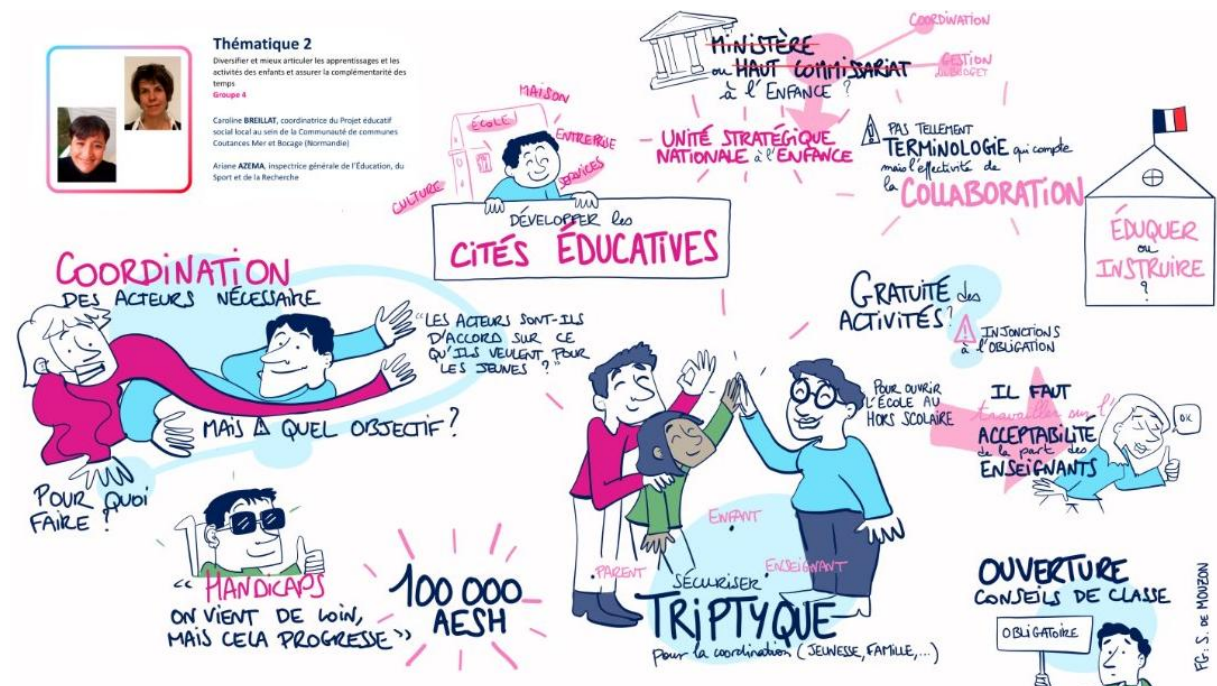 Thématique 2
Diversifier et mieux articuler les apprentissages et les
activités des enfants et assurer la complémentarité des
temps
Groupe 4
Caroline BREILLAT, coordinatrice du Projet éducatif
social local au sein de la Communauté de communes
Coutances Mer et Bocage (Normandie)
Ariane AZEMA, inspectrice générale de l'Éducation, du
Sport et de la Recherche
MINISTÈRE
ou HAUT COMMISSARIAT
à l'ENFANCE ?
COORDINATION
GESTION
du BUDGET
UNITÉ STRATÉGIQUE
NATIONALE à l'ENFANCE
⚠ PAS TELLEMENT
TERMINOLOGIE qui compte
mais l'effectivité de
la COLLABORATION
ÉDUQUER
ou
INSTRUIRE
?
MAISON
ÉCOLE
ENTREPRISE
SERVICES
CULTURE
DÉVELOPPER les
CITÉS ÉDUCATIVES
COORDINATION
DES ACTEURS NÉCESSAIRE
"LES ACTEURS SONT-ILS
D'ACCORD SUR CE
QU'ILS VEULENT POUR
LES JEUNES ?"
MAIS ⚠ QUEL OBJECTIF ?
POUR QUOI
FAIRE ?
GRATUITÉ des
ACTIVITÉS ?
⚠ INJONCTIONS
à l'OBLIGATION
POUR OUVRIR
L'ÉCOLE AU
HORS SCOLAIRE
IL FAUT
travailler sur l'
ACCEPTABILITÉ
de la part des
ENSEIGNANTS
OK
"HANDICAPS
ON VIENT DE LOIN,
MAIS CELA PROGRESSE"
100 000
AESH
ENFANT
PARENT
ENSEIGNANT
SÉCURISER
TRIPTYQUE
pour la coordination (JEUNESSE, FAMILLE,...)
OUVERTURE
CONSEILS DE CLASSE
OBLIGATOIRE
FG : S. DE MOUZON